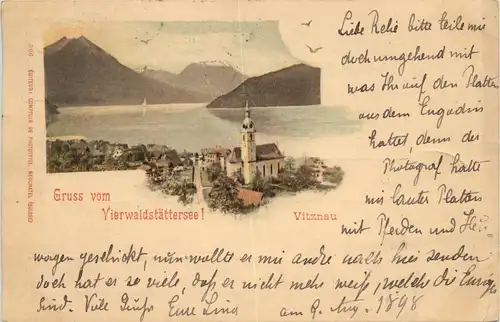 Liebe Relie bitte teile mir
doch umgehend mit
was Ihr auf den Platten
aus dem Engadin
hattet, denn der
Photograf hatte
mir lauter Platten
mit Pferden und Heu-
wagen geschickt, nun wollte er mir andre nach hier senden
doch hat er so viele, dass er nicht mehr weiss, welch die Eurigen
sind. Viele Grüsse Eure Lina am 9. Aug. 1898
Gruss vom
Vierwaldstättersee!
Vitznau
EDITEUR, COMPTOIR DE PHOTOTYPIE, NEUCHATEL